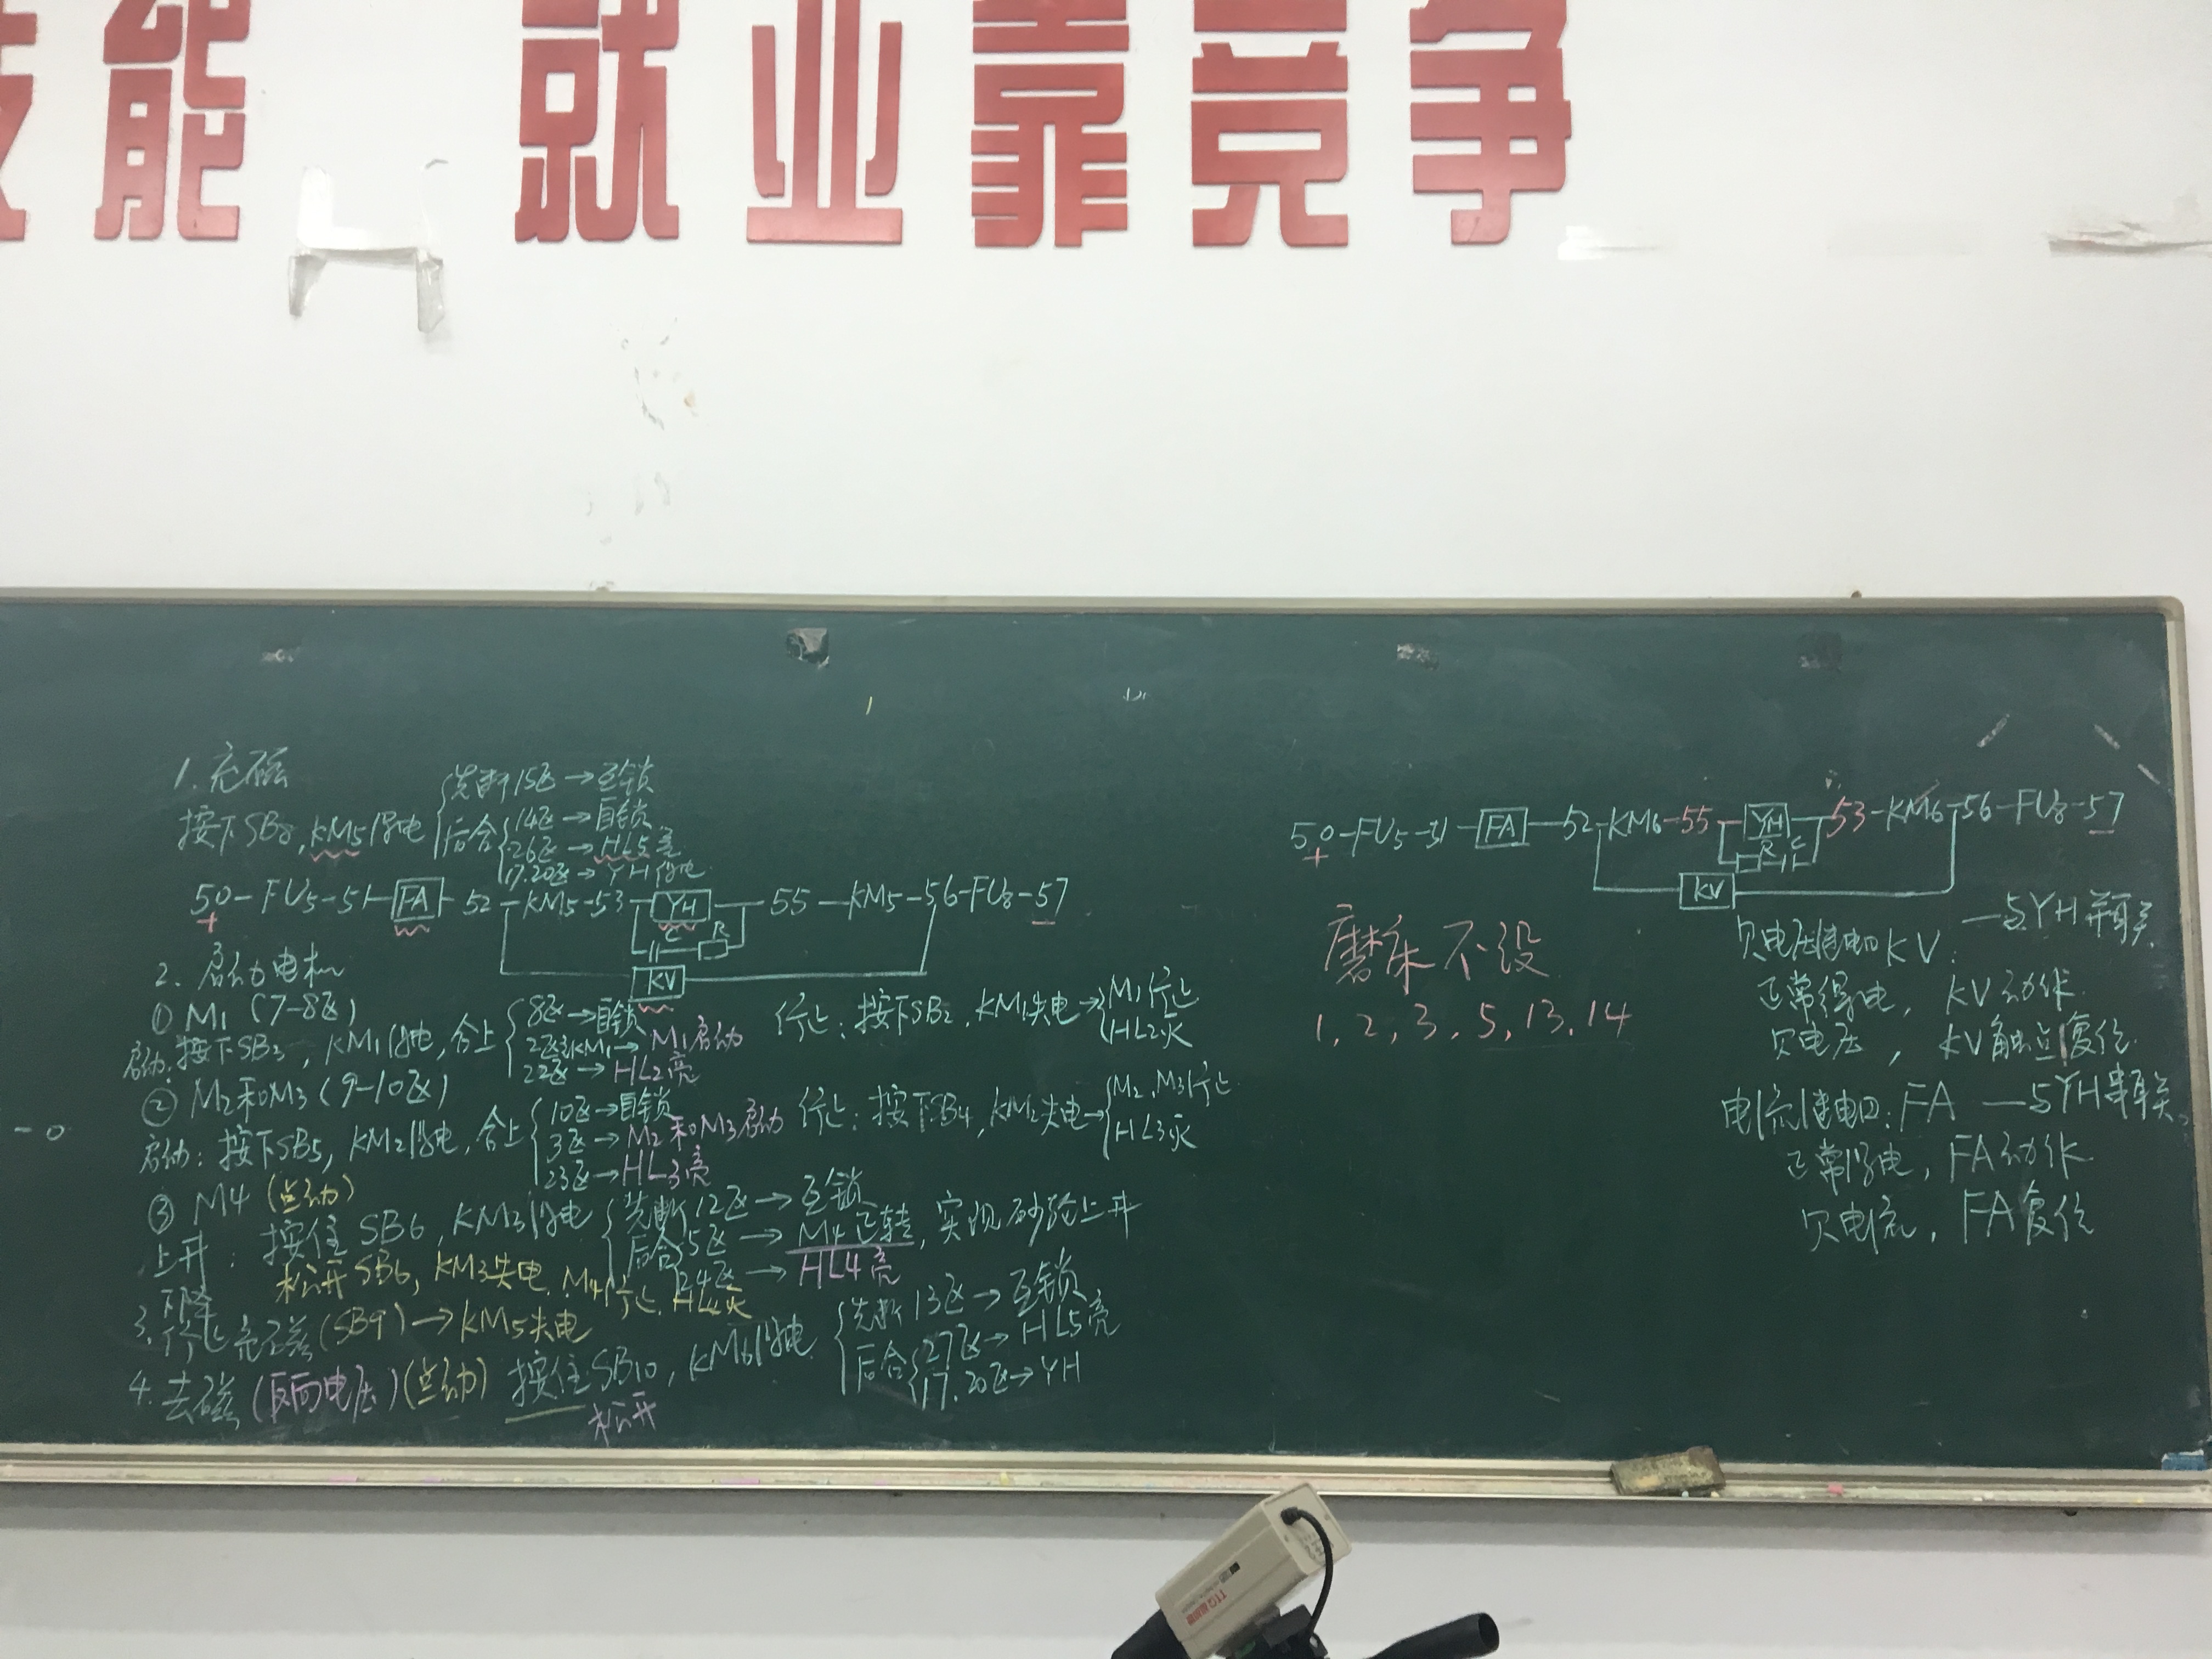 能 就业靠竞争
1. 充磁
按下SB8, KM5得电
先断15区→互锁
后合
14区→自锁
26区→HL5亮
17.20区→YH得电
50-FU5-51-FA-52-KM5-53-YH-55-KM5-56-FU8-57
+
-
C R
KV
2. 启动电机
① M1 (7-8区)
启动:按下SB3, KM1得电,合上
8区→自锁
2区KM1→M1启动
22区→HL2亮
停止:按下SB2, KM1失电→
M1停止
HL2灭
② M2和M3 (9-10区)
启动:按下SB5, KM2得电,合上
10区→自锁
3区→M2和M3启动
23区→HL3亮
停止:按下SB4, KM2失电→
M2, M3停止
HL3灭
③ M4 (点动)
上升:按住SB6, KM3得电
先断12区→互锁
后合
5区→M4正转,实现砂轮上升
24区→HL4亮
松开SB6, KM3失电. M4停止. HL4灭
下降
3. 停止充磁(SB9)→KM5失电
4. 去磁(反向电压)(点动) 按住SB10, KM6得电
松开
先断13区→互锁
后合
27区→HL5亮
17.20区→YH
50-FU5-51-FA-52-KM6-55-YH-53-KM6-56-FU8-57
+
-
R C
KV
磨床不设
1, 2, 3, 5, 13. 14
欠电压继电口KV: —与YH并联
正常得电, KV动作
欠电压, KV触点复位
电流继电口:FA —与YH串联
正常得电, FA动作
欠电流, FA复位